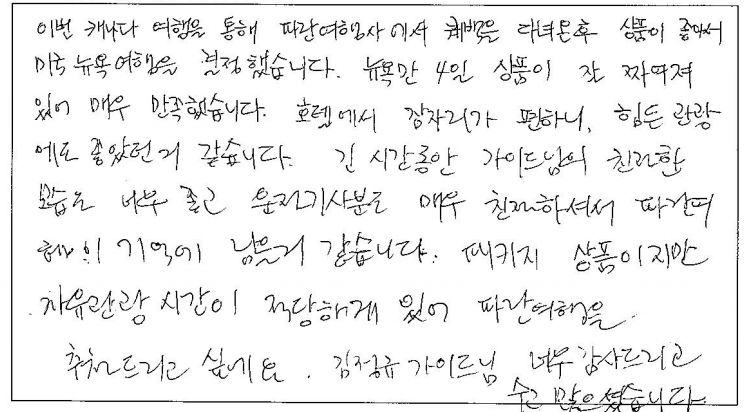 이번 캐나다 여행을 통해 파란여행사에서 퀘벡을 다녀온후 상품이 좋아서
미국 뉴욕여행을 결정했습니다. 뉴욕만 4일 상품이 잘 짜여져
있어 매우 만족했습니다. 호텔에서 잠자리가 편하니, 힘든 관광
에도 좋았던거 같습니다. 긴 시간동안 가이드님의 친절한
모습도 너무 좋고 운전기사분도 매우 친절하셔서 파란여
행의 기억에 남을거 같습니다. 패키지 상품이지만
자유관광 시간이 적당하게 있어 파란여행을
추천드리고 싶네요. 김정규 가이드님 너무 감사드리고
수고 많으셨습니다